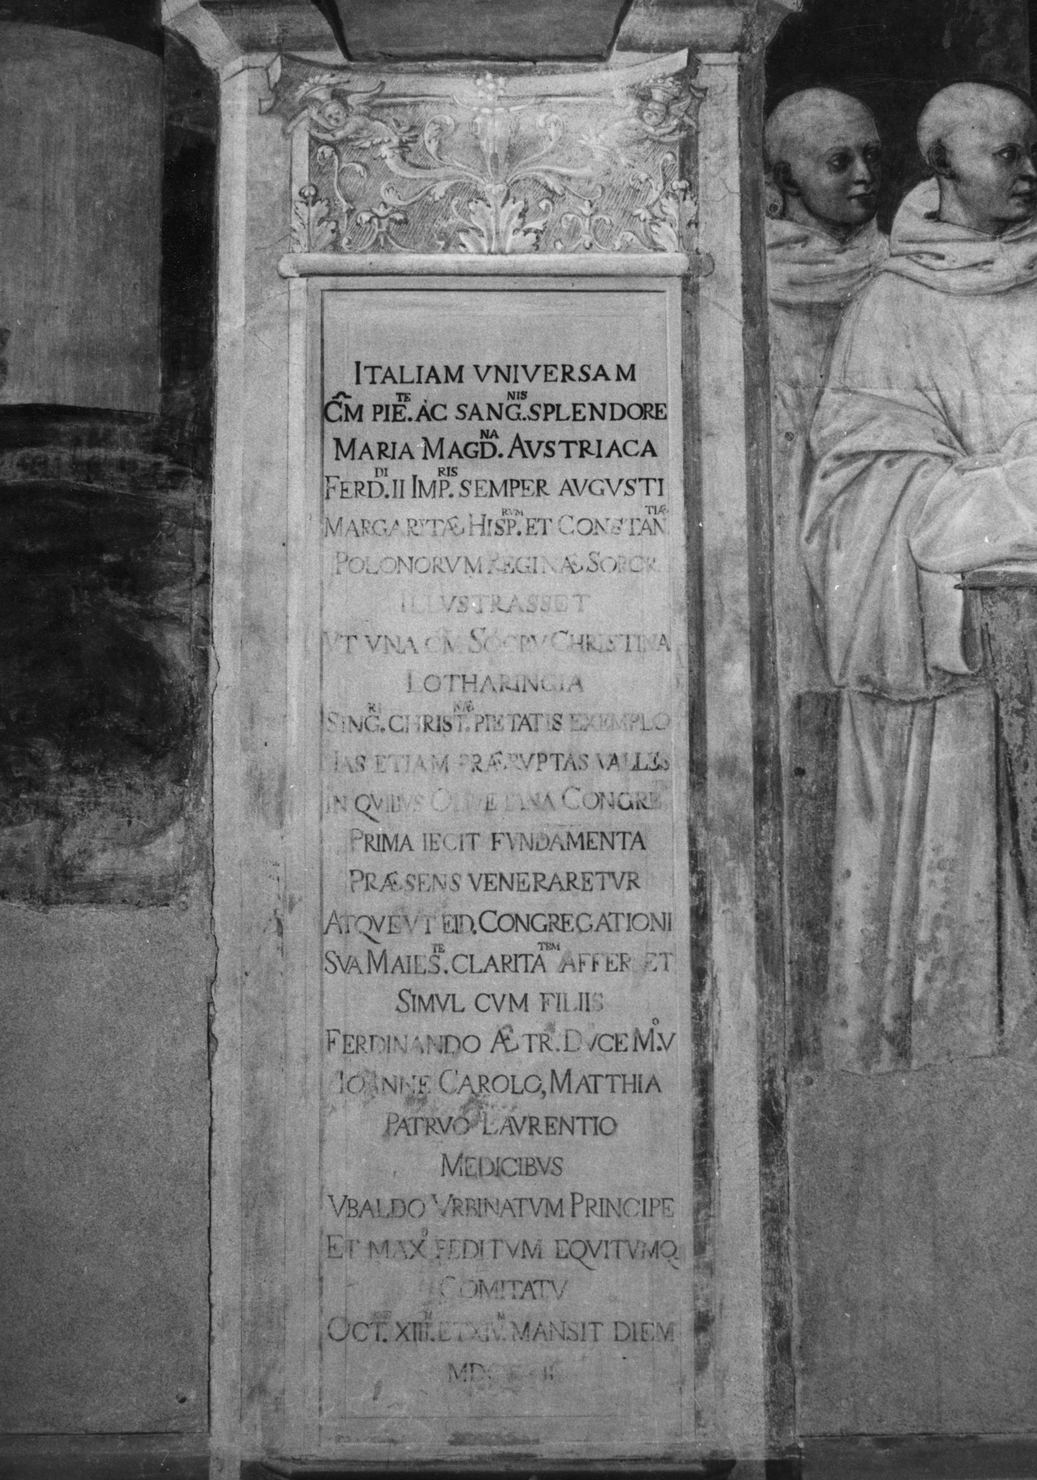 ITALIAM VNIVERSAM
CṀ PIE.TE AC SANG.NIS SPLENDORE
MARIA MAGD.NA AVSTRIACA
FERD.DI II IMP.RIS SEMPER AVGVSTI
MARGARITÆ HISP.RVM ET CONSTAN.TIÆ
POLONORVM REGINÆ SOROR
ILLVSTRASSET
VT VNA CM SOCRV CHRISTINA
LOTHARINGIA
SING.RI CHRIST.NÆ PIETATIS EXEMPLO
HAS ETIAM PRÆRVPTAS VALLES
IN QVIBVS OLIVETANA CONGRE
PRIMA IECIT FVNDAMENTA
PRÆSENS VENERARETVR
ATQVE VT EID. CONGREGATIONI
SVA MAIES.TE CLARITA.TEM AFFER ET
SIMVL CVM FILIIS
FERDINANDO Æ TR. DVCE M.o V
IOANNE CAROLO, MATTHIA
PATRVO LAVRENTIO
MEDICIBVS
VBALDO VRBINATVM PRINCIPE
ET MAX.o PEDITVM EQVITVMQ
COMITATV
OCT. XIII. ET XIV. MANSIT DIEM